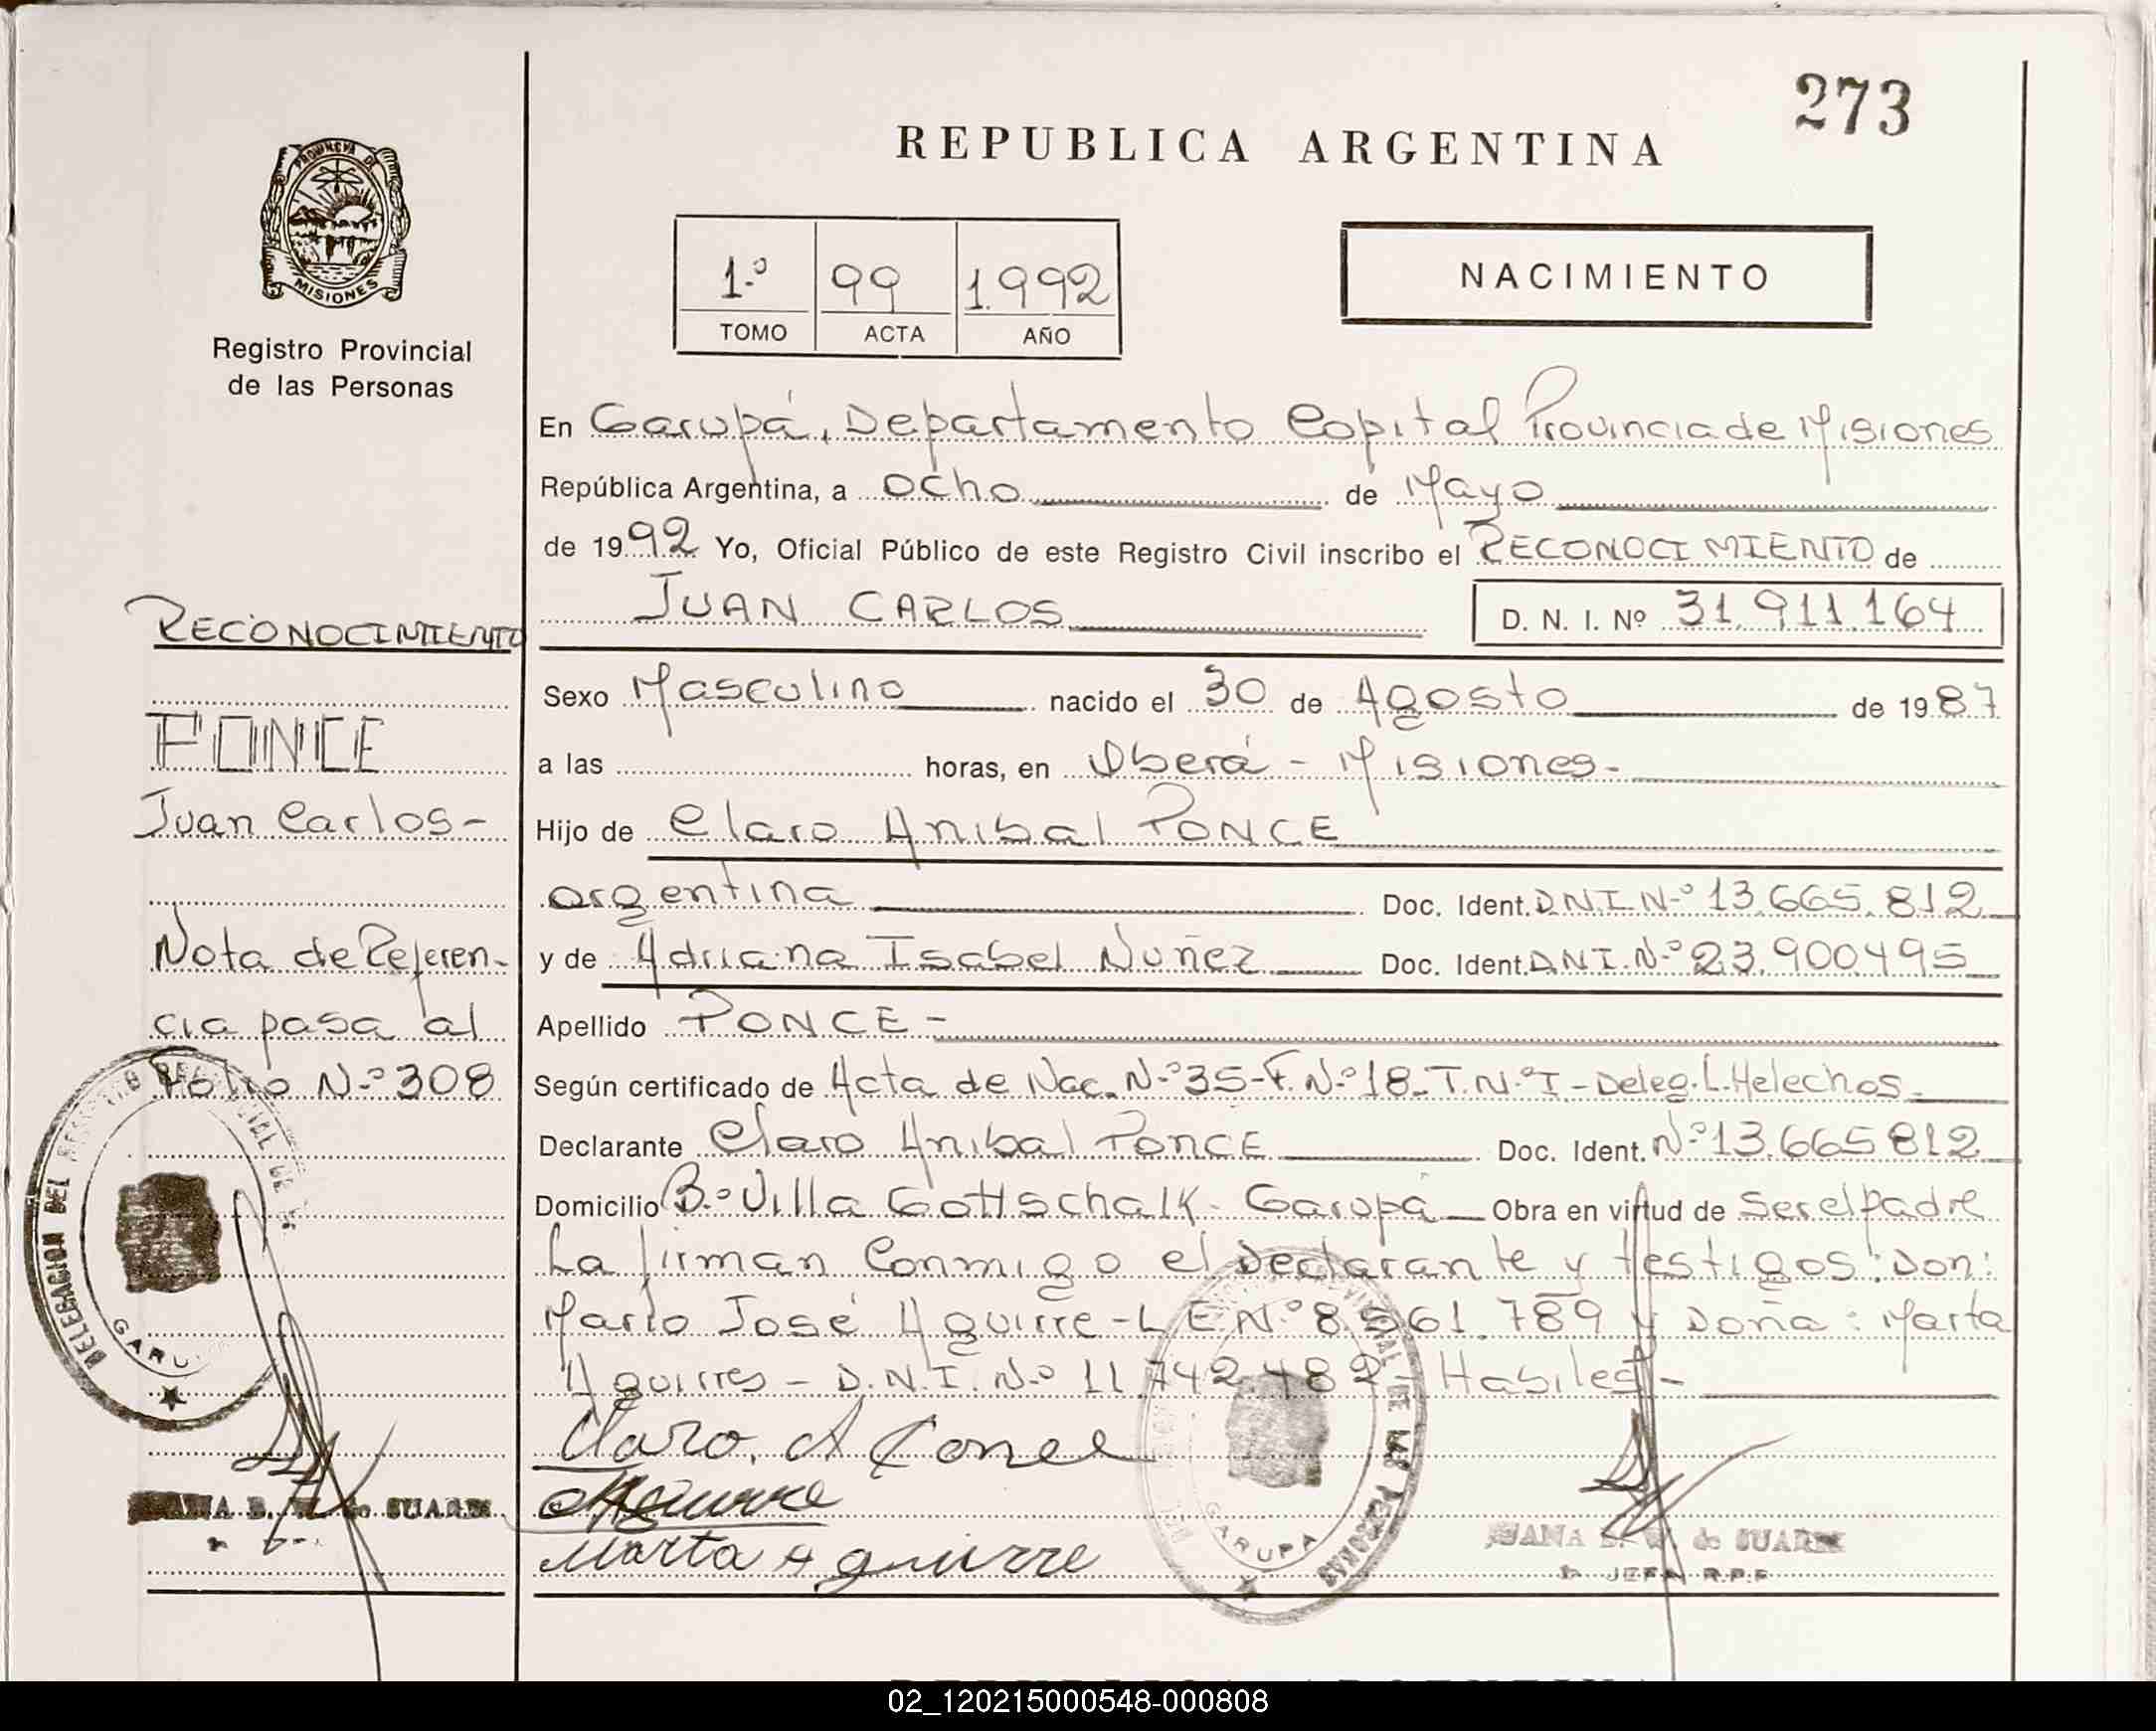 273
REPUBLICA ARGENTINA
PROVINCIA DE
MISIONES
Registro Provincial
de las Personas
1º 99 1992
TOMO ACTA AÑO
NACIMIENTO
En Garupá, Departamento Capital Provincia de Misiones
República Argentina, a ocho de Mayo
de 1992 Yo, Oficial Público de este Registro Civil inscribo el RECONOCIMIENTO de
JUAN CARLOS D. N. I. Nº 31.911.164
Sexo Masculino nacido el 30 de Agosto de 1987
a las horas, en Oberá - Misiones-
Hijo de Claro Anibal PONCE
argentina Doc. Ident. D.N.I. Nº 13.665.812
y de Adriana Isabel Nuñez Doc. Ident. DNI. Nº 23.900495
Apellido PONCE-
Según certificado de Acta de Nac. Nº 35-F. Nº 18-T.Nº I - Deleg. L. Helechos
Declarante Claro Anibal PONCE Doc. Ident. Nº 13.665812
Domicilio Bº Villa Gottschalk - Garupá Obra en virtud de Ser el padre
La firman Conmigo el Declarante y testigos: Don:
Mario José Aguirre - L.E.Nº 8.561.789 y Doña: Marta
Aguirres - D.N.I. Nº 11.742.482 - Habiles -
Claro. A Ponce
Aguirre
Marta Aguirre
GARUPA
JUANA de SUAREZ
JEFA R.P.P
RECONOCIMIENTO
PONCE
Juan Carlos-
Nota de Referen-
cia pasa al
Folio Nº 308
DELEGACION DEL
GARU
de SUAREZ
02_120215000548-000808